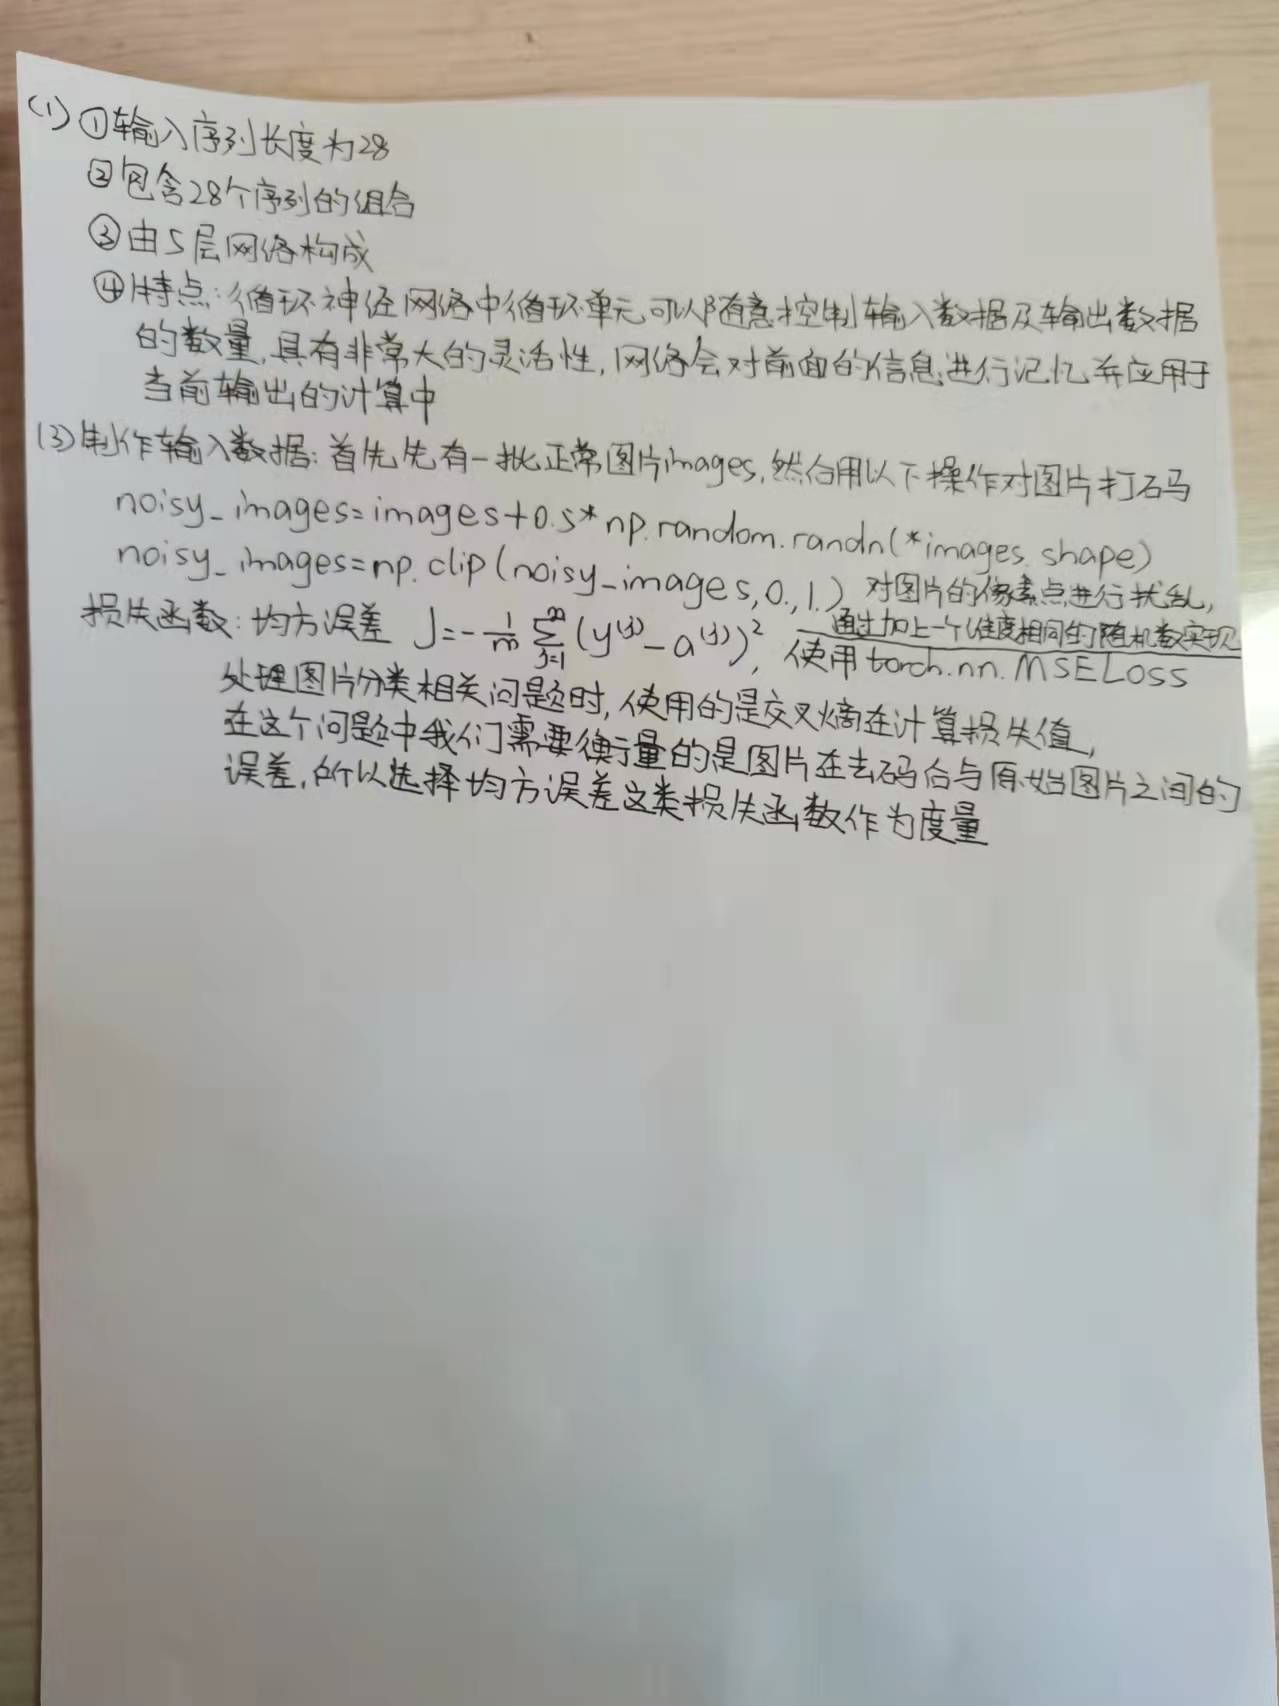 (1) ①输入序列长度为28
②包含28个序列的组合
③由5层网络构成
④特点:循环神经网络中循环单元可以随意控制输入数据及输出数据
的数量,具有非常大的灵活性,网络会对前面的信息进行记忆并应用于
当前输出的计算中
(3)制作输入数据:首先先有一批正常图片images,然后用以下操作对图片打码
noisy_images=images+0.5*np.random.randn(*images.shape)
noisy_images=np.clip(noisy_images,0.,1.) 对图片的像素点进行扰乱,
通过加上一个维度相同的随机数实现
损失函数:均方误差 J=-1/m ∑_{j=1}^{m}(y^{(j)}-a^{(j)})²,使用torch.nn.MSELoss
处理图片分类相关问题时,使用的是交叉熵在计算损失值,
在这个问题中我们需要衡量的是图片在去码后与原始图片之间的
误差,所以选择均方误差这类损失函数作为度量